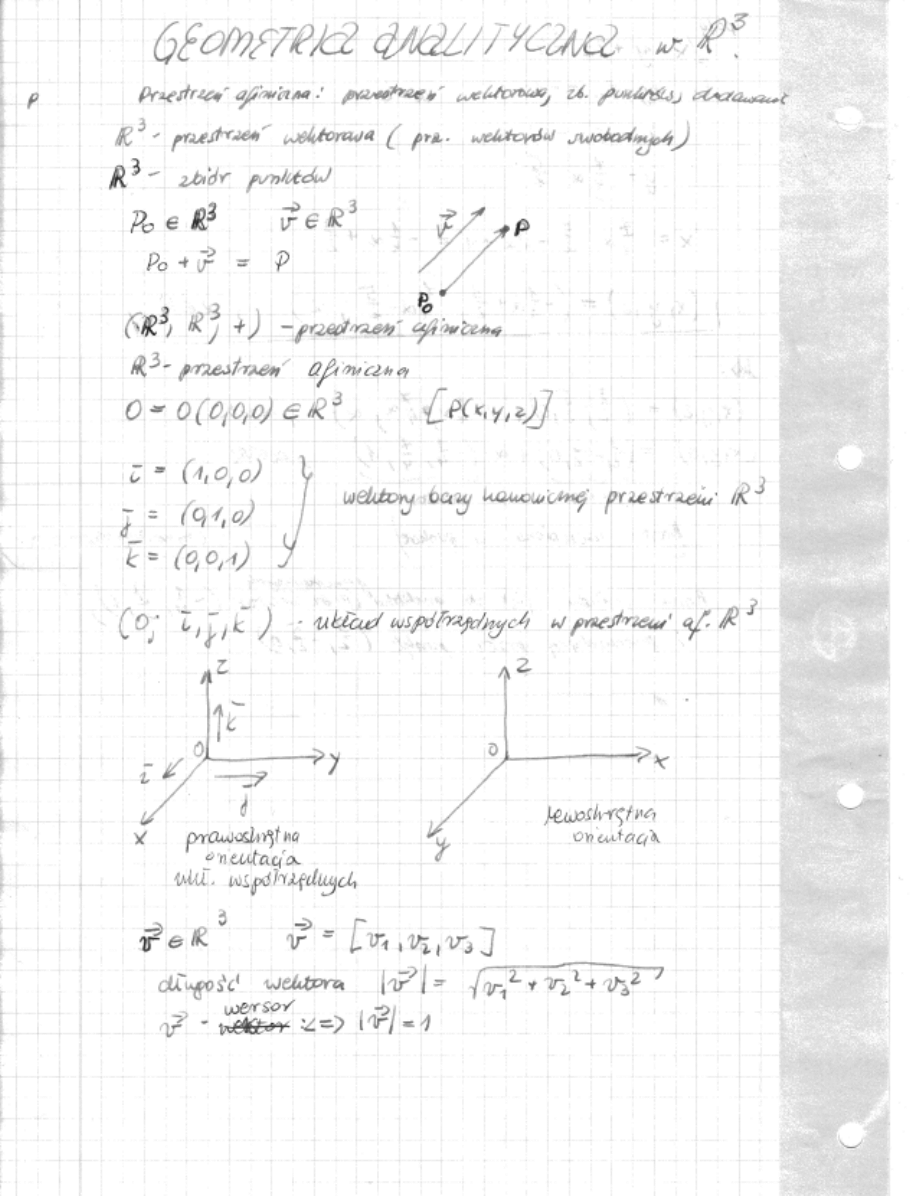 GEOMETRIA ANALITYCZNA w R³.
P Przestrzeń afiniczna: przestrzeń wektorowa, zb. punktów, dodawanie
R³ - przestrzeń wektorowa (prz. wektorów swobodnych)
R³ - zbiór punktów
P₀ ∈ R³ v⃗ ∈ R³ v⃗ P
P₀ + v⃗ = P
P₀
(R³, R³, +) - przestrzeń afiniczna
R³ - przestrzeń afiniczna
O = O(0,0,0) ∈ R³ [P(x,y,z)]
i̅ = (1,0,0)
j̅ = (0,1,0) wektory bazy kanonicznej przestrzeni R³
k̅ = (0,0,1)
(O; i̅, j̅, k̅) - układ współrzędnych w przestrzeni af. R³
z z
k̅
O y O x
i̅ j̅
x y
prawoskrętna lewoskrętna
orientacja orientacja
ukł. współrzędnych
v⃗ ∈ R³ v⃗ = [v₁, v₂, v₃]
długość wektora |v⃗| = √(v₁² + v₂² + v₃²)
wersor
v⃗ - wektor :<=> |v⃗| = 1